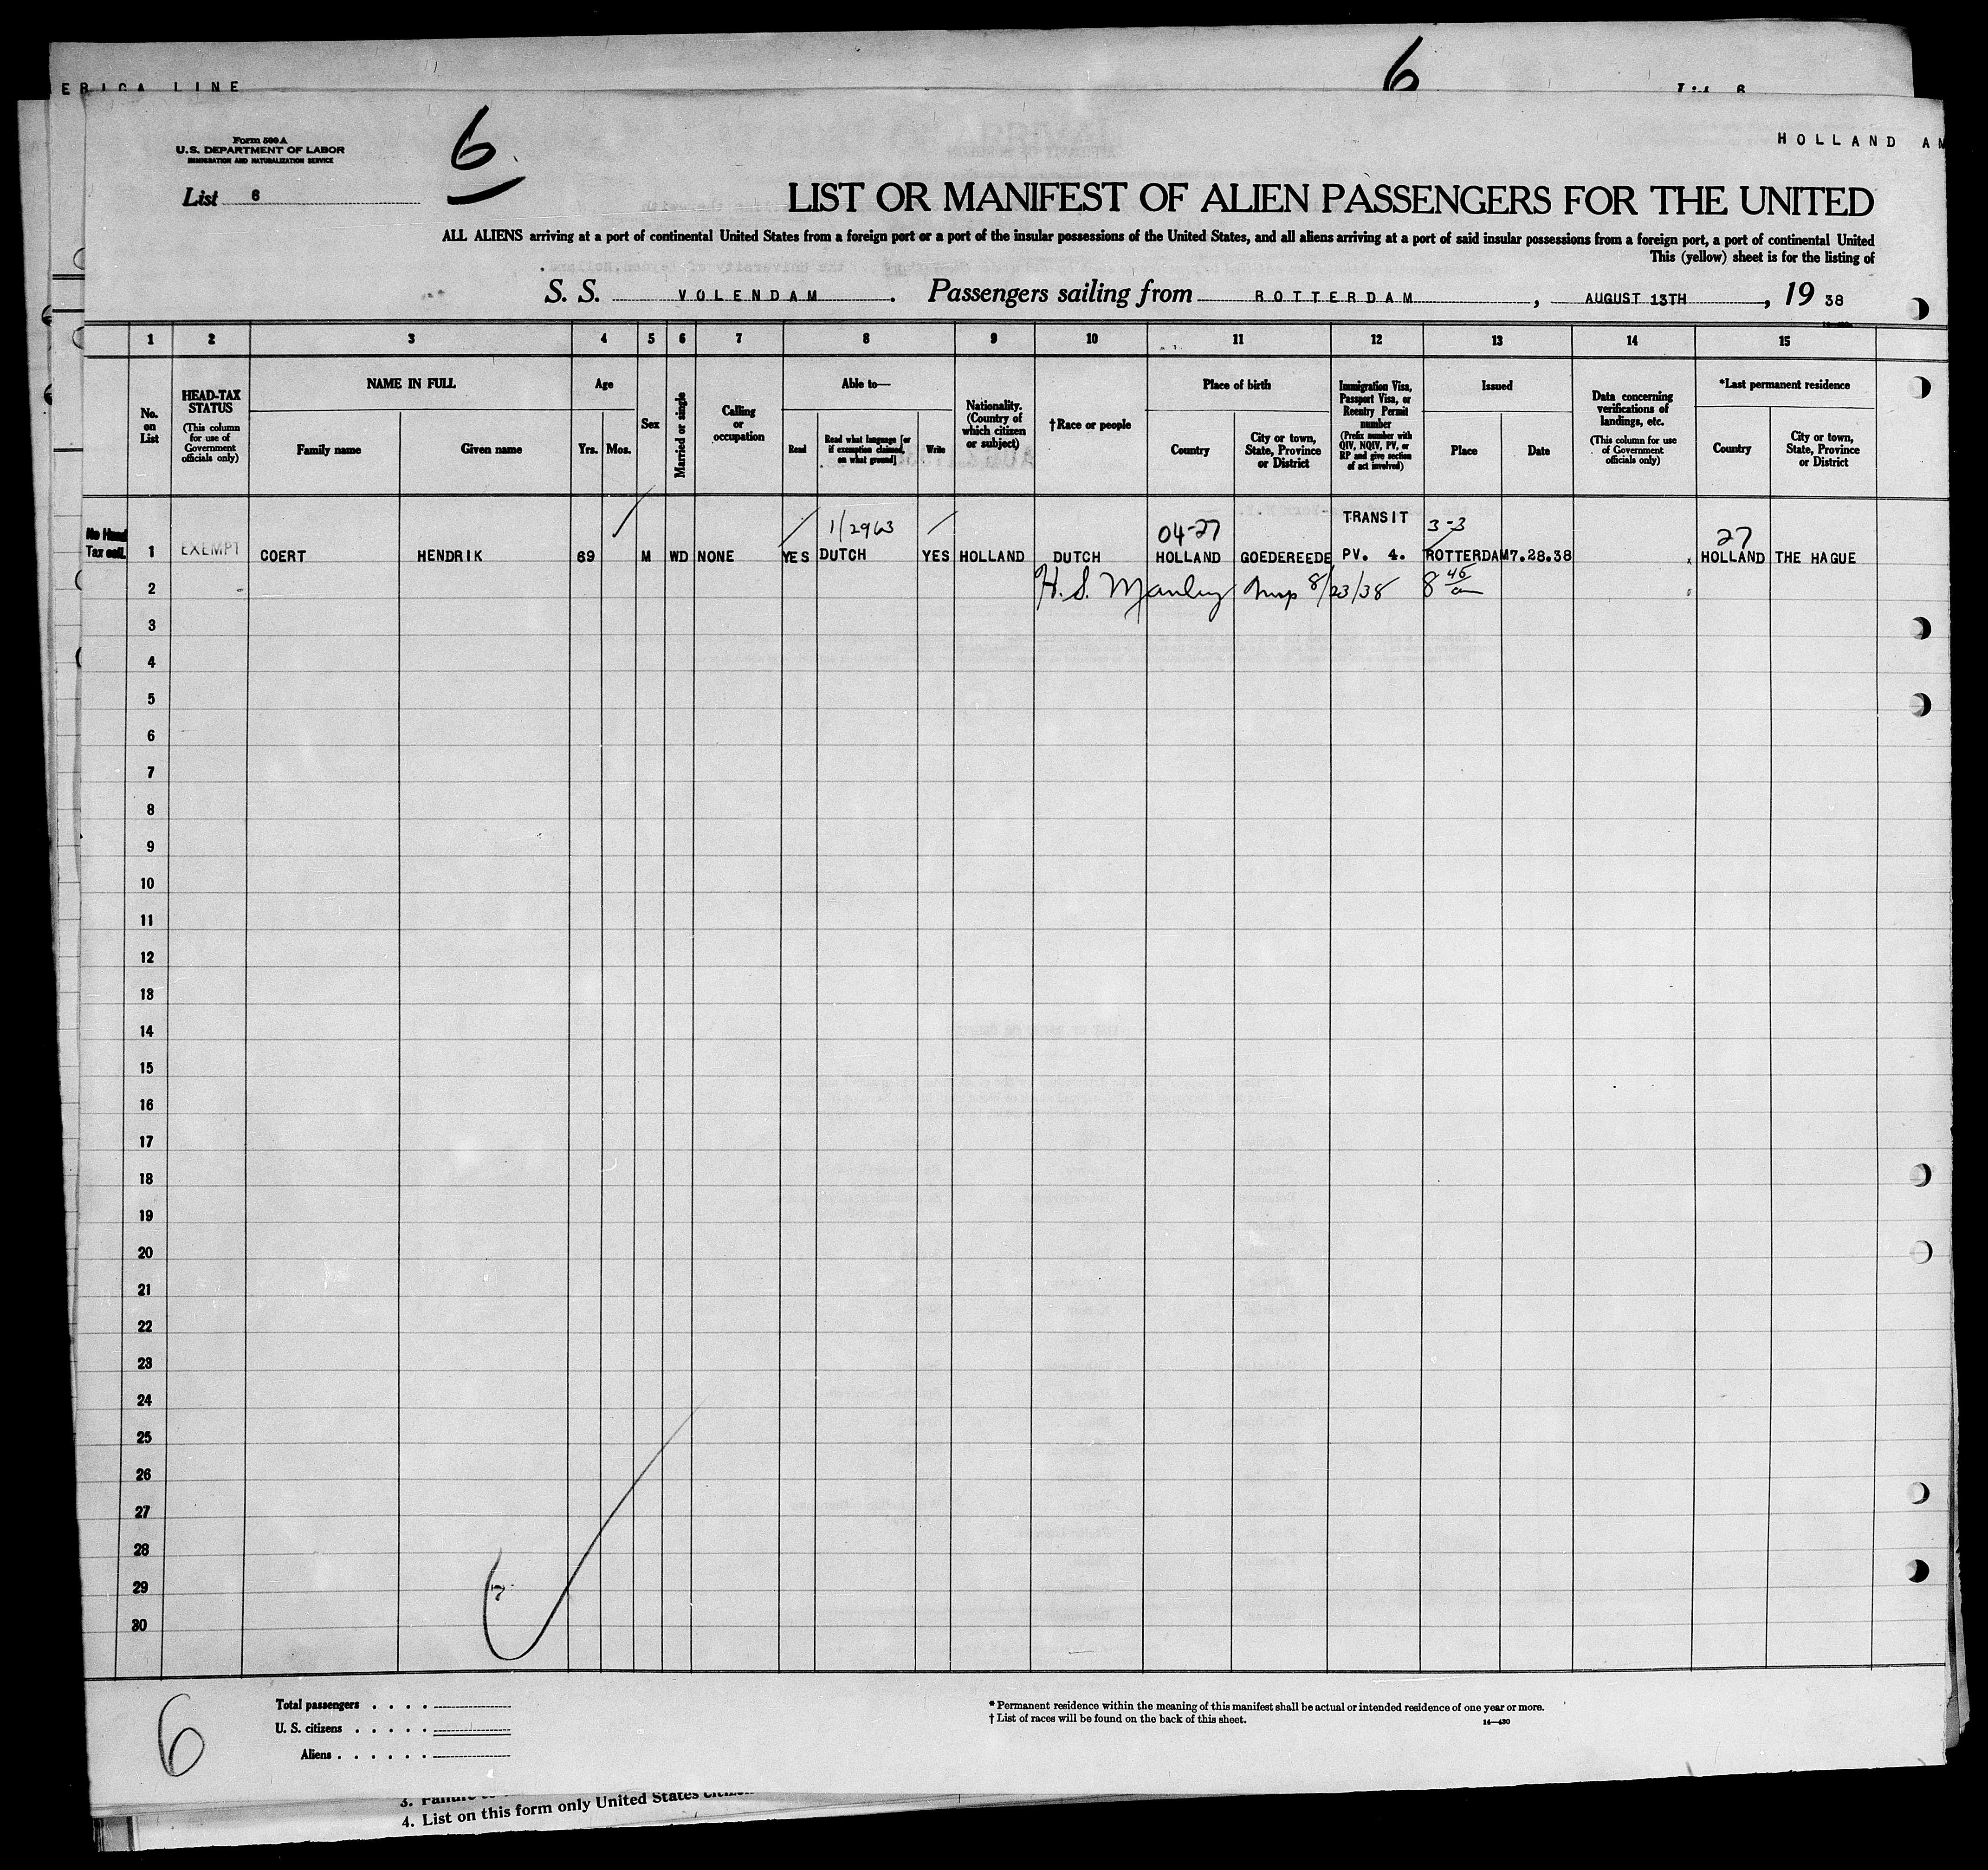 ERICA LINE
6
HOLLAND AM
Form 500 A
U.S. DEPARTMENT OF LABOR
IMMIGRATION AND NATURALIZATION SERVICE
6
List 6
LIST OR MANIFEST OF ALIEN PASSENGERS FOR THE UNITED
ALL ALIENS arriving at a port of continental United States from a foreign port or a port of the insular possessions of the United States, and all aliens arriving at a port of said insular possessions from a foreign port, a port of continental United
This (yellow) sheet is for the listing of
S. S. VOLENDAM. Passengers sailing from ROTTERDAM, AUGUST 13TH, 19 38
1 2 3 4 5 6 7 8 9 10 11 12 13 14 15
No. on List
HEAD-TAX STATUS
(This column for use of Government officials only)
NAME IN FULL
Family name
Given name
Age
Yrs. Mos.
Sex
Married or single
Calling or occupation
Able to—
Read
Read what language [or if exemption claimed, on what ground]
Write
Nationality. (Country of which citizen or subject)
†Race or people
Place of birth
Country
City or town, State, Province or District
Immigration Visa, Passport Visa, or Reentry Permit number
(Prefix number with QIV, NQIV, PV, or RP and give section of act involved)
Issued
Place
Date
Data concerning verifications of landings, etc.
(This column for use of Government officials only)
*Last permanent residence
Country
City or town, State, Province or District
1/2963 04-27 TRANSIT 3-3 27
No Head Tax coll. 1 EXEMPT COERT HENDRIK 69 M WD NONE YES DUTCH YES HOLLAND DUTCH HOLLAND GOEDEREEDE PV. 4. ROTTERDAM 7.28.38 HOLLAND THE HAGUE
2 H. S. Manley Insp 8/23/38 8 45 am
3
4
5
6
7
8
9
10
11
12
13
14
15
16
17
18
19
20
21
22
23
24
25
26
27
28
29
30
6
Total passengers . . . .
U. S. citizens . . . . .
Aliens . . . . . .
* Permanent residence within the meaning of this manifest shall be actual or intended residence of one year or more.
† List of races will be found on the back of this sheet.
14—430
4. List on this form only United States